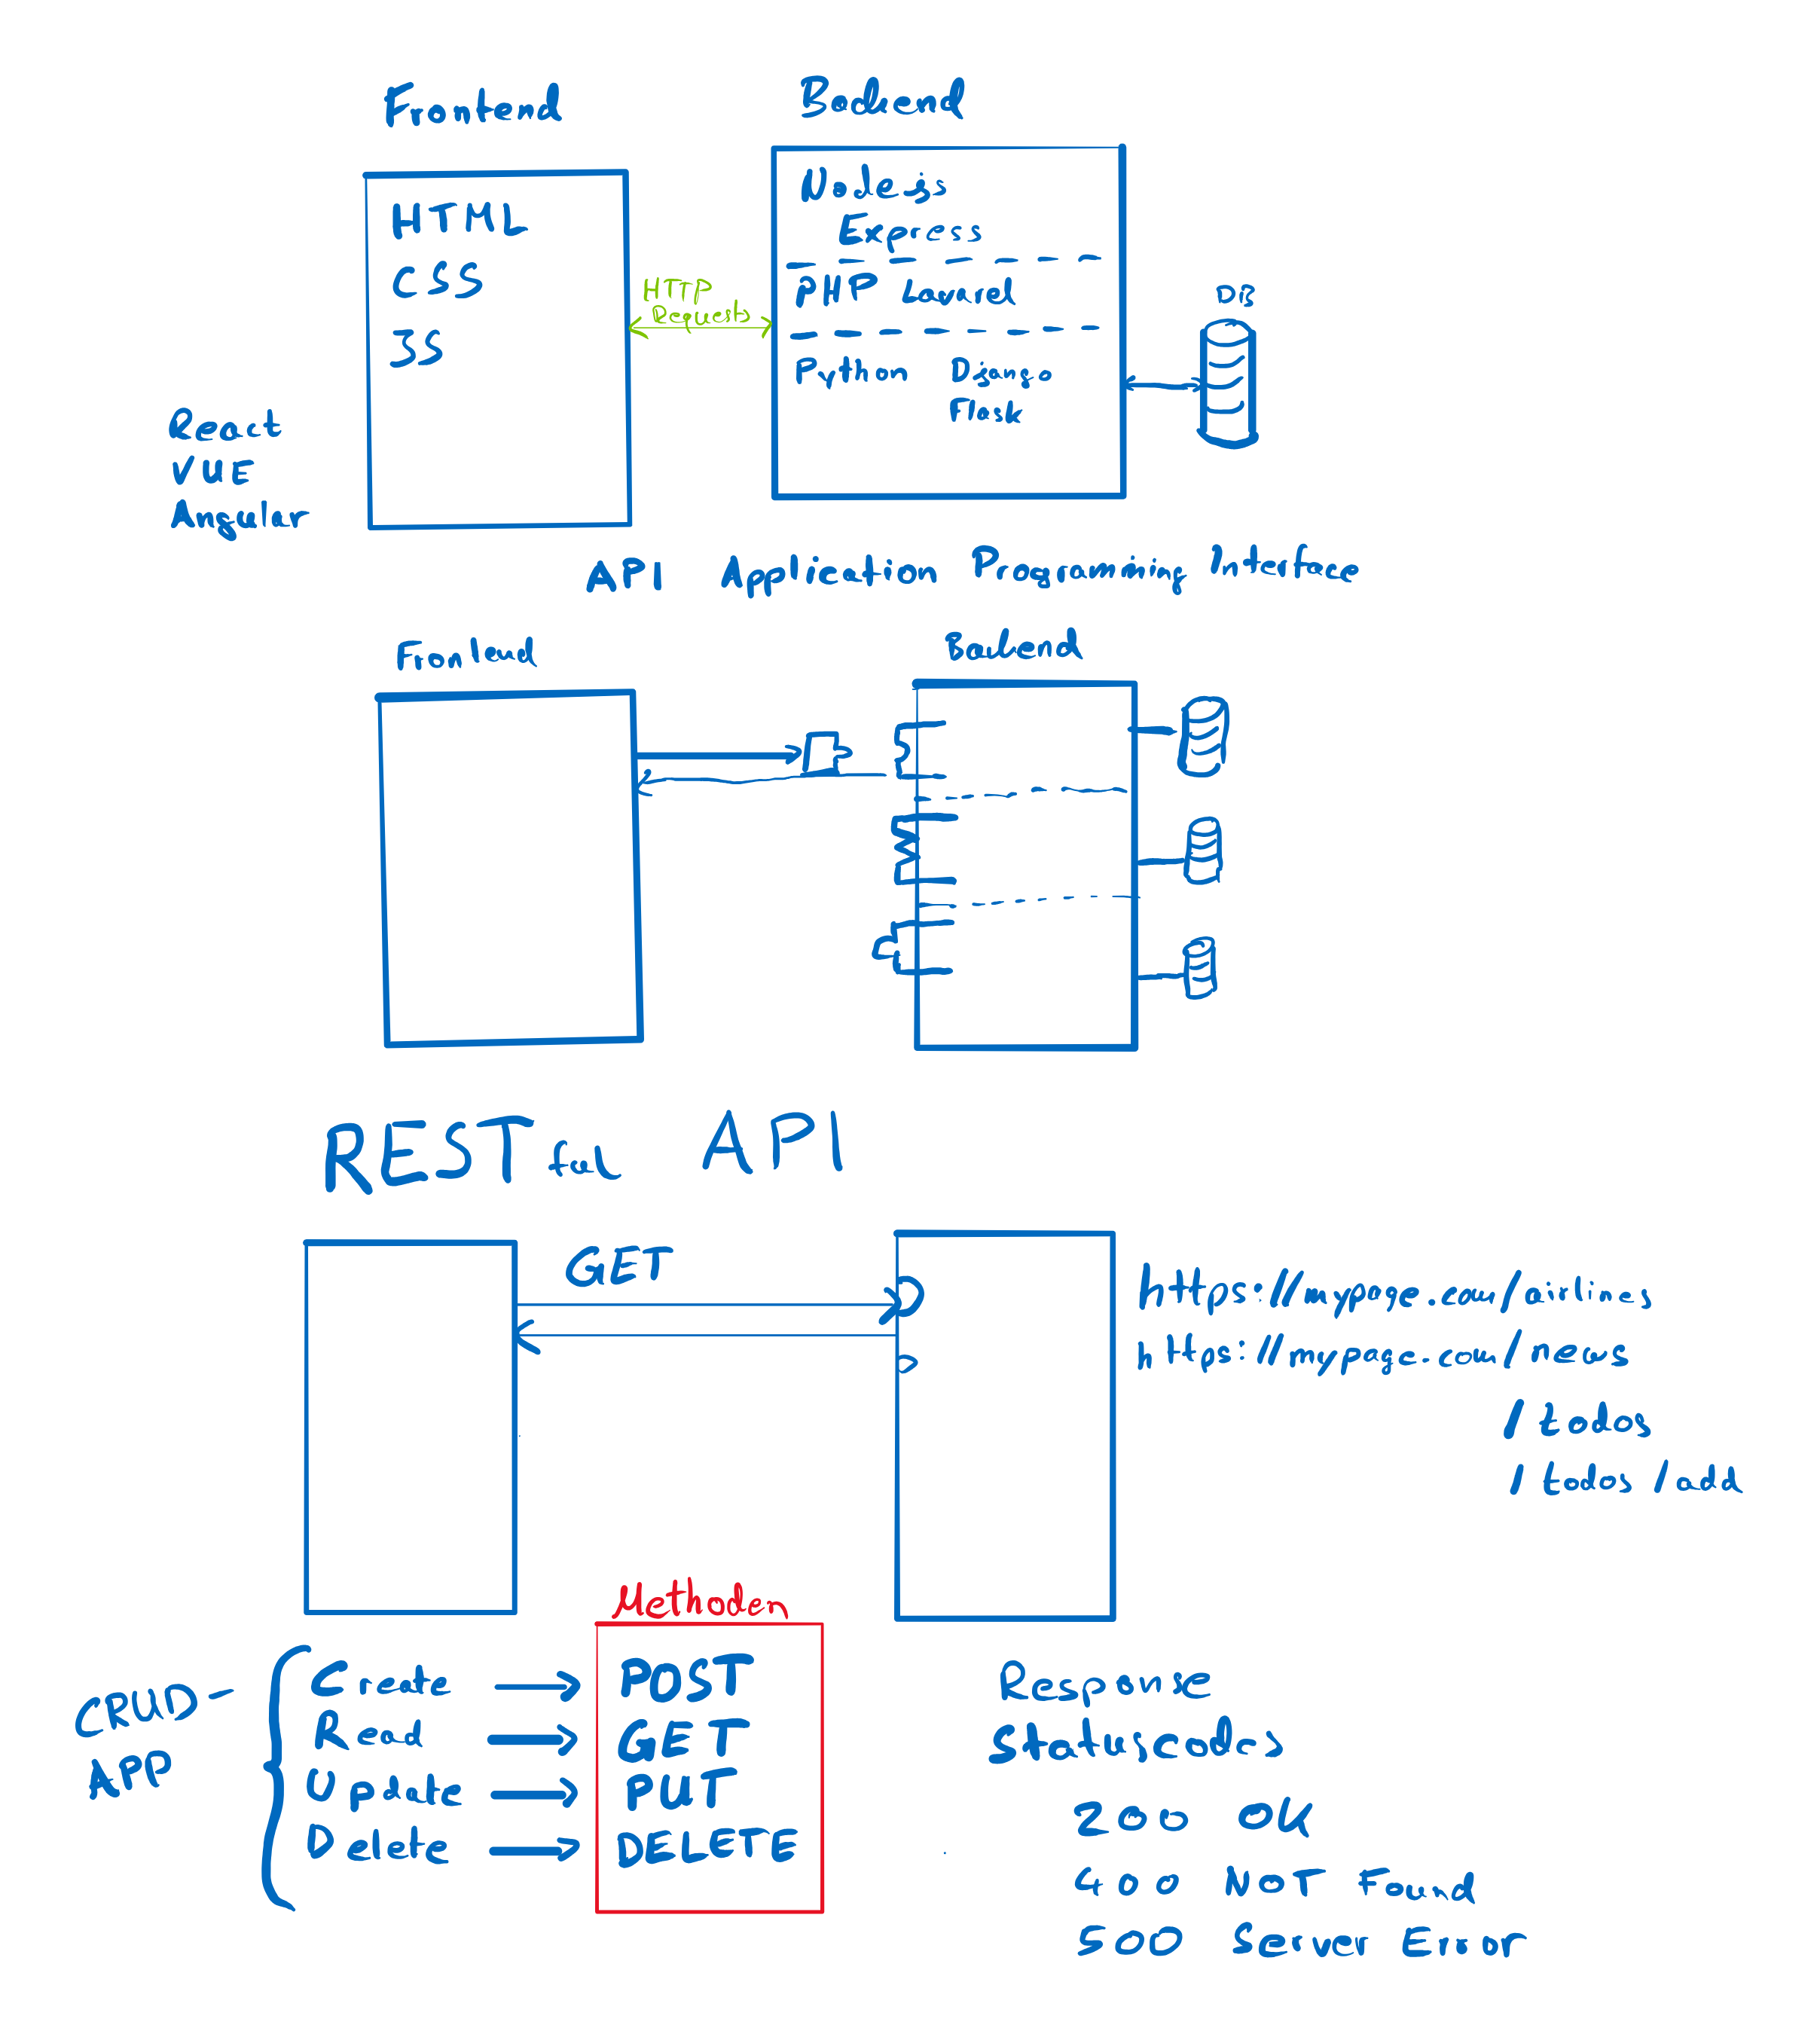 Frontend
Backend
HTML
CSS
JS
Node.js
Express
PHP Lavarel
Python Django
Flask
HTTP
Requests
DB
React
VUE
Angular
API Application Programming Interface
Frontend
Backend
RESTful API
GET
https://mypage.com/airlines
https://mypage.com/news
/todos
/todos/add
Methoden
CRUD-
APP
Create → POST
Read → GET
Update → PUT
Delete → DELETE
Response
Statuscodes
200 OK
400 NOT Found
500 Server Error